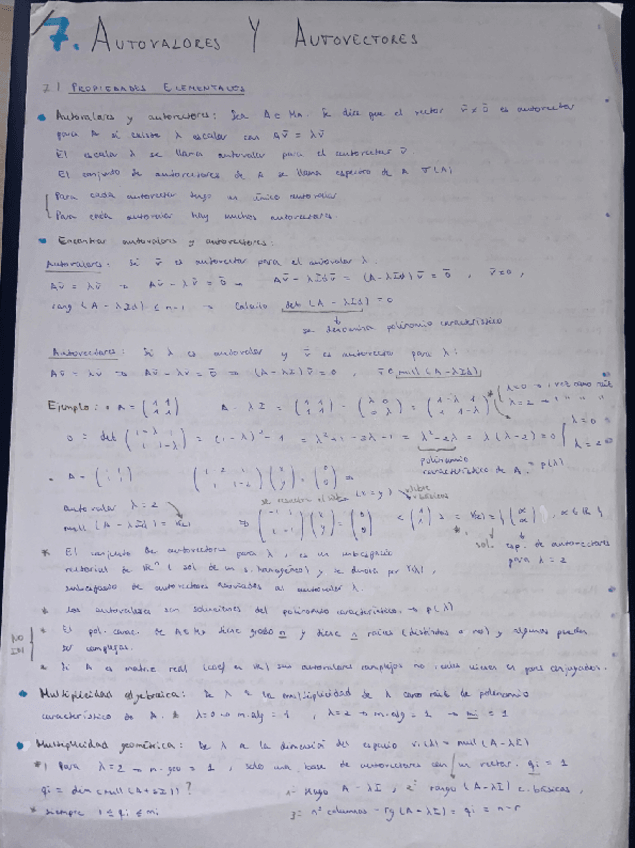 7. AUTOVALORES Y AUTOVECTORES
7.1 PROPIEDADES ELEMENTALES
Autovalores y autovectores: Sea A ∈ Mn. Se dice que el vector v̄ ≠ 0̄ es autovector
para A si existe λ escalar con Av̄ = λv̄
El escalar λ se llama autovalor para el autovector v̄
El conjunto de autovectores de A se llama espectro de A σ(A)
Para cada autovector tengo un único autovalor
Para cada autovalor hay muchos autovectores.
Encontrar autovalores y autovectores:
Autovalores: Si v̄ es autovector para el autovalor λ.
Av̄ = λv̄ → Av̄ - λv̄ = 0̄ → Av̄ - λIdv̄ = (A-λId)v̄ = 0̄, v̄≠0,
rang (A - λId) ≤ n-1 → Calculo det (A - λId) = 0
se denomina polinomio característico
Autovectores: Si λ es autovalor y v̄ es autovector para λ:
Av̄ = λv̄ → Av̄ - λv̄ = 0̄ → (A-λI)v̄ = 0, v̄ ∈ null (A-λId)
Ejemplo: A = (1 1 / 1 1) A - λI = (1 1 / 1 1) - (λ 0 / 0 λ) = (1-λ 1 / 1 1-λ)
λ=0 → 1 vez como raíz
λ=2 → 1
0 = det (1-λ 1 / 1 1-λ) = (1-λ)² - 1 = λ²+1-2λ-1 = λ²-2λ = λ(λ-2) = 0 λ=0 λ=2
polinomio
característico de A = p(λ)
A = (1 1 / 1 1) (1-2 1 / 1 1-2)(x / y) = (0 / 0) ⇒
se resuelve el (x = y) libre básicas
autovalor λ=2
null (A - λId) = V(2) ⇒ (-1 1 / 1 -1)(x / y) = (0 / 0) < (1 / 1) > = V(2) = { (α / α), α ∈ R }
sol. esp. de autovectores
para λ = 2
* El conjunto de autovectores para λ, es un subespacio
vectorial de Rⁿ (sol de un s. homogéneo) y se denota por V(λ),
subespacio de autovectores asociados al autovalor λ.
* Los autovalores son soluciones del polinomio característico. → p(λ)
* El pol. carac. de A ∈ Mn tiene grado n y tiene n raíces (distintas o no) y algunas pueden
ser complejas.
* Si A es matriz real (coef en R) sus autovalores complejos no reales vienen en pares conjugados.
Multiplicidad algebraica: De λ a la multiplicidad de λ como raíz de polinomio
característico de A. * λ=0 → m.alg = 1, λ=2 → m.alg = 1 → mi = 1
Multiplicidad geométrica: De λ a la dimensión del espacio V(λ) = null (A - λI)
*1 Para λ=2 → m.geo = 1, solo una base de autovectores con un vector. qi = 1
qi = dim (null (A+2I))? 1º Hago A - λI, 2º rango (A-λI) c. básicas,
* siempre 1 ≤ qi ≤ mi 3º nº columnas - rg (A-λI) = qi = n-r